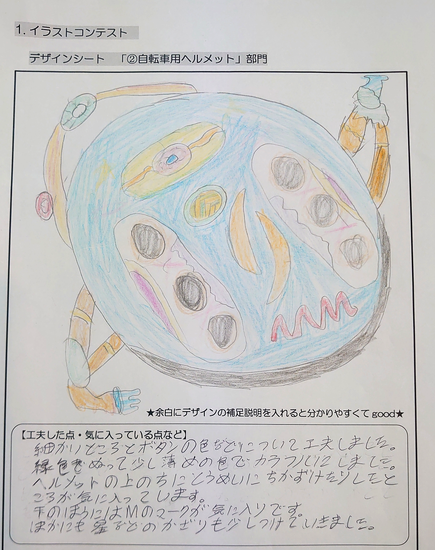 1. イラストコンテスト
デザインシート 「②自転車用ヘルメット」部門
★余白にデザインの補足説明を入れると分かりやすくてgood★
【工夫した点・気に入っている点など】
細かいところとボタンの色などについて工夫しました。
緑色をぬって少し薄めの色でカラフルにしました。
ヘルメットの上のちにとうめいにちかずけたりしたと
ころが気に入ってします。
下のほうにはMのマークが気に入りです。
ほかにも星などのかざりも少しつけていきました。